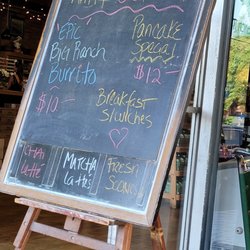 EPIC
Big Ranch
Burrito
$10 —
Pancake
Special
$12 —
Breakfast
S/unches
CHAI
Latte
MATCHA
Lattes
FRESH
Scones